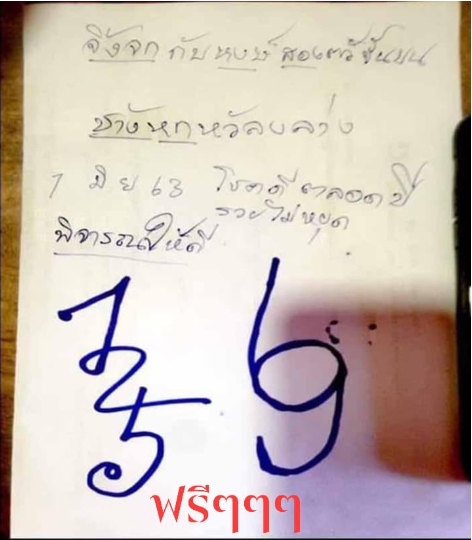 จิ้งจก กับหงษ์ สองตัวชั้นบน
ช้างหกหัวลงล่าง
1 มิย 63 โชคดีตลอดปี
รวยไม่หยุด
พิจารณาให้ดี
1
2
5
ฟรีๆๆๆ